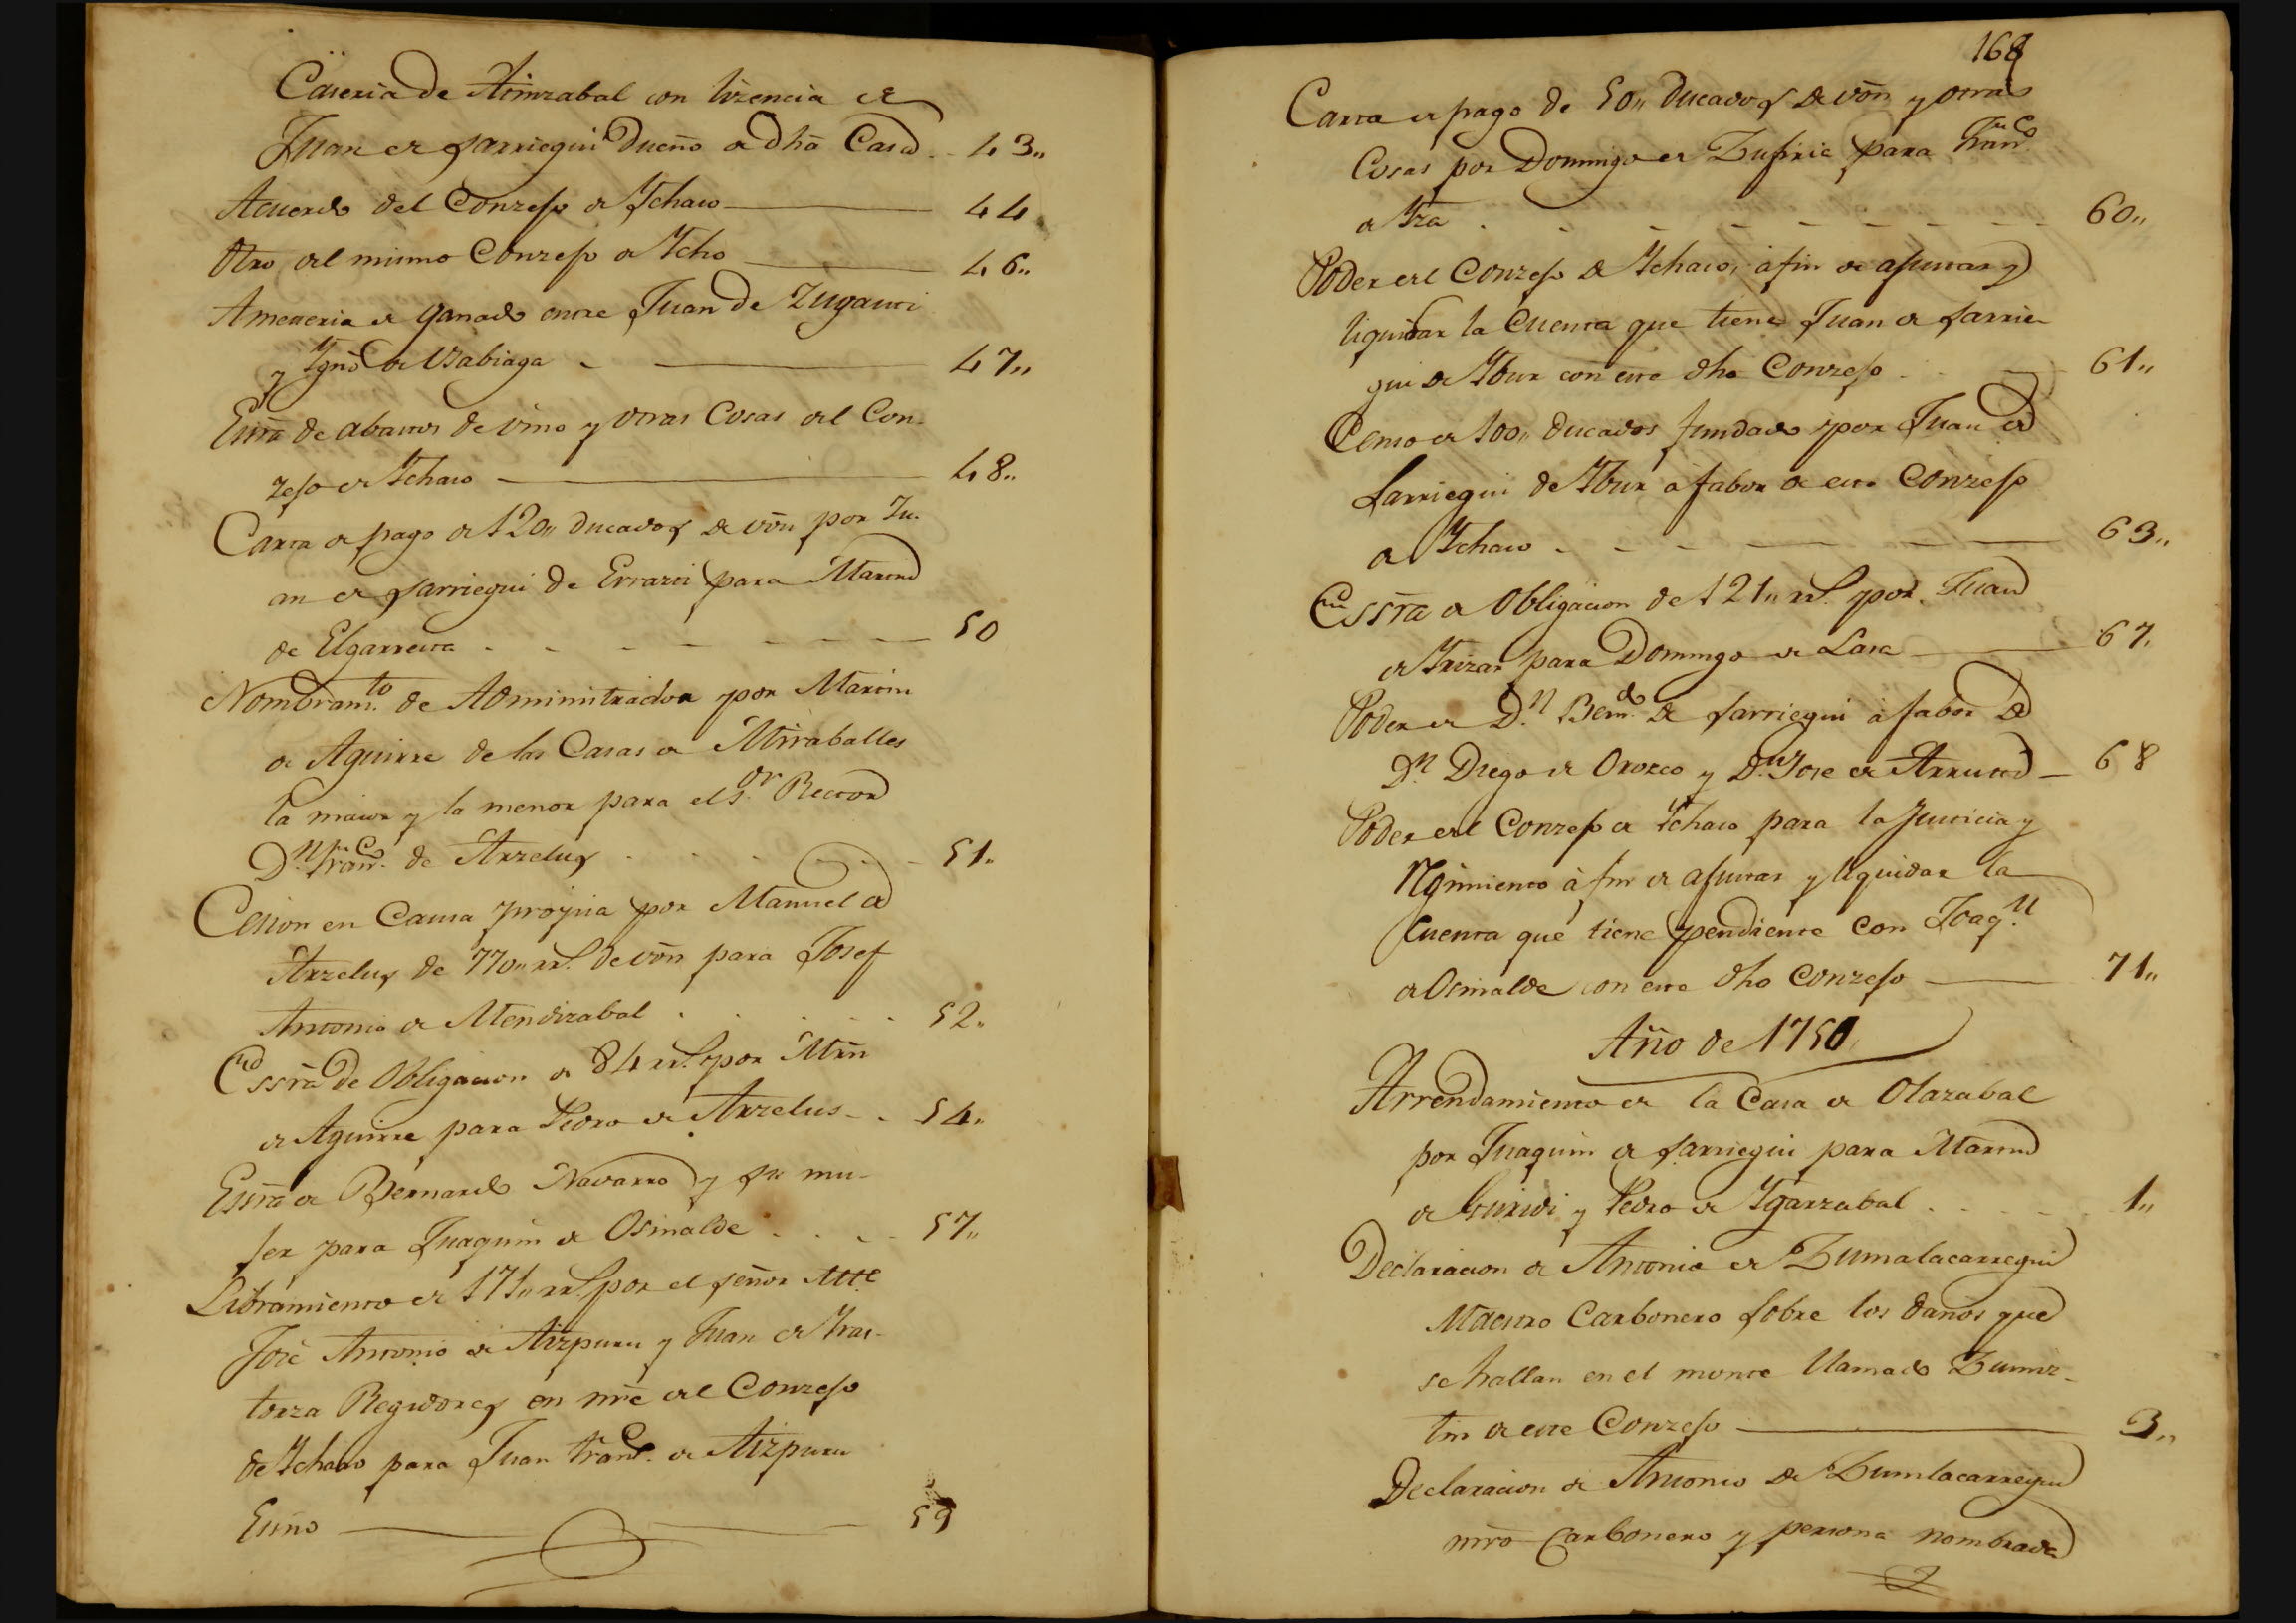 Caseria de Aimzabal con lizencia de
Juan de Sarriegui Dueño de Dhã Casa 43,,
Acuerdo del Conzejo de Ychaso 44
Otro del mismo Conzejo de Ycho 46,,
Ameteria de ganado entre Juan de Zugasti
y Ygnõ de Usabiaga 47,,
Essrã de abastos de vino y otras Cosas del Con-
zejo de Ychaso 48,,
Carta de pago de 120,, ducados de võn por Ju-
an de Sarriegui de Errazti para Martin
de Elgarresta 50
Nombram.to de Administrador por Martin
de Aguirre de las Casas de Miraballes
la maior y la menor para el S.or Rector
D.n Fran.co de Arzelus 51,,
Cesion en Causa propia por Manuel de
Arzelus de 770,, rr.s de võn para Josef
Antonio de Mendizabal 52,,
Essrã de Obligacion de 84 rr.s por Mrñ
de Aguirre para Pedro de Arzelus 54,,
Essrã de Bernardo Navarro y su mu-
jer para Juaquin de Osinalde 57,,
Libramiento de 171,, rr.s por el señor Alc̃e
José Antonio de Aizpuru y Juan de Yras-
torza Regidores en nrẽ del Conzejo
de Ychaso para Juan Fran.co de Aizpuru
Essño 59
168
Carta de pago de 50,, ducados de võn y otras
Cosas por Domingo de Zufiria para Fran.co
de Yza 60,,
Poder del Conzejo de Ychaso, à fin de ajustar y
liquidar la Cuenta que tiene Juan de Sarrie-
gui de Ybur con este dho Conzejo 61,,
Censo de 100,, ducados fundado por Juan de
Sarriegui de Ybur à fabor de este Conzejo
de Ychaso 63,,
Essrã de Obligacion de 121,, rr.s por Juan
de Yrizar para Domingo de Lasa 67,
Poder de D.n Bern.do de Sarriegui à fabor de
D.n Diego de Orozco y D.n Jose de Arrue 68
Poder del Conzejo de Ychaso para la Justicia y
Rejimiento à fin de ajustar y liquidar la
Cuenta que tiene pendiente con Joaq.n
de Osinalde con este dho Conzejo 71,,
Año de 1750
Arrendamiento de la Casa de Olazabal
por Juaquin de Sarriegui para Martin
de Guridi y Pedro de Ygarzabal 1,,
Declaracion de Antonio de Zumalacarregui
Maestro Carbonero sobre los daños que
se hallan en el monte llamado Zumiz-
tin de este Conzejo 3,,
Declaracion de Antonio de Zumlacarregui
mrõ Carbonero y persona nombrada